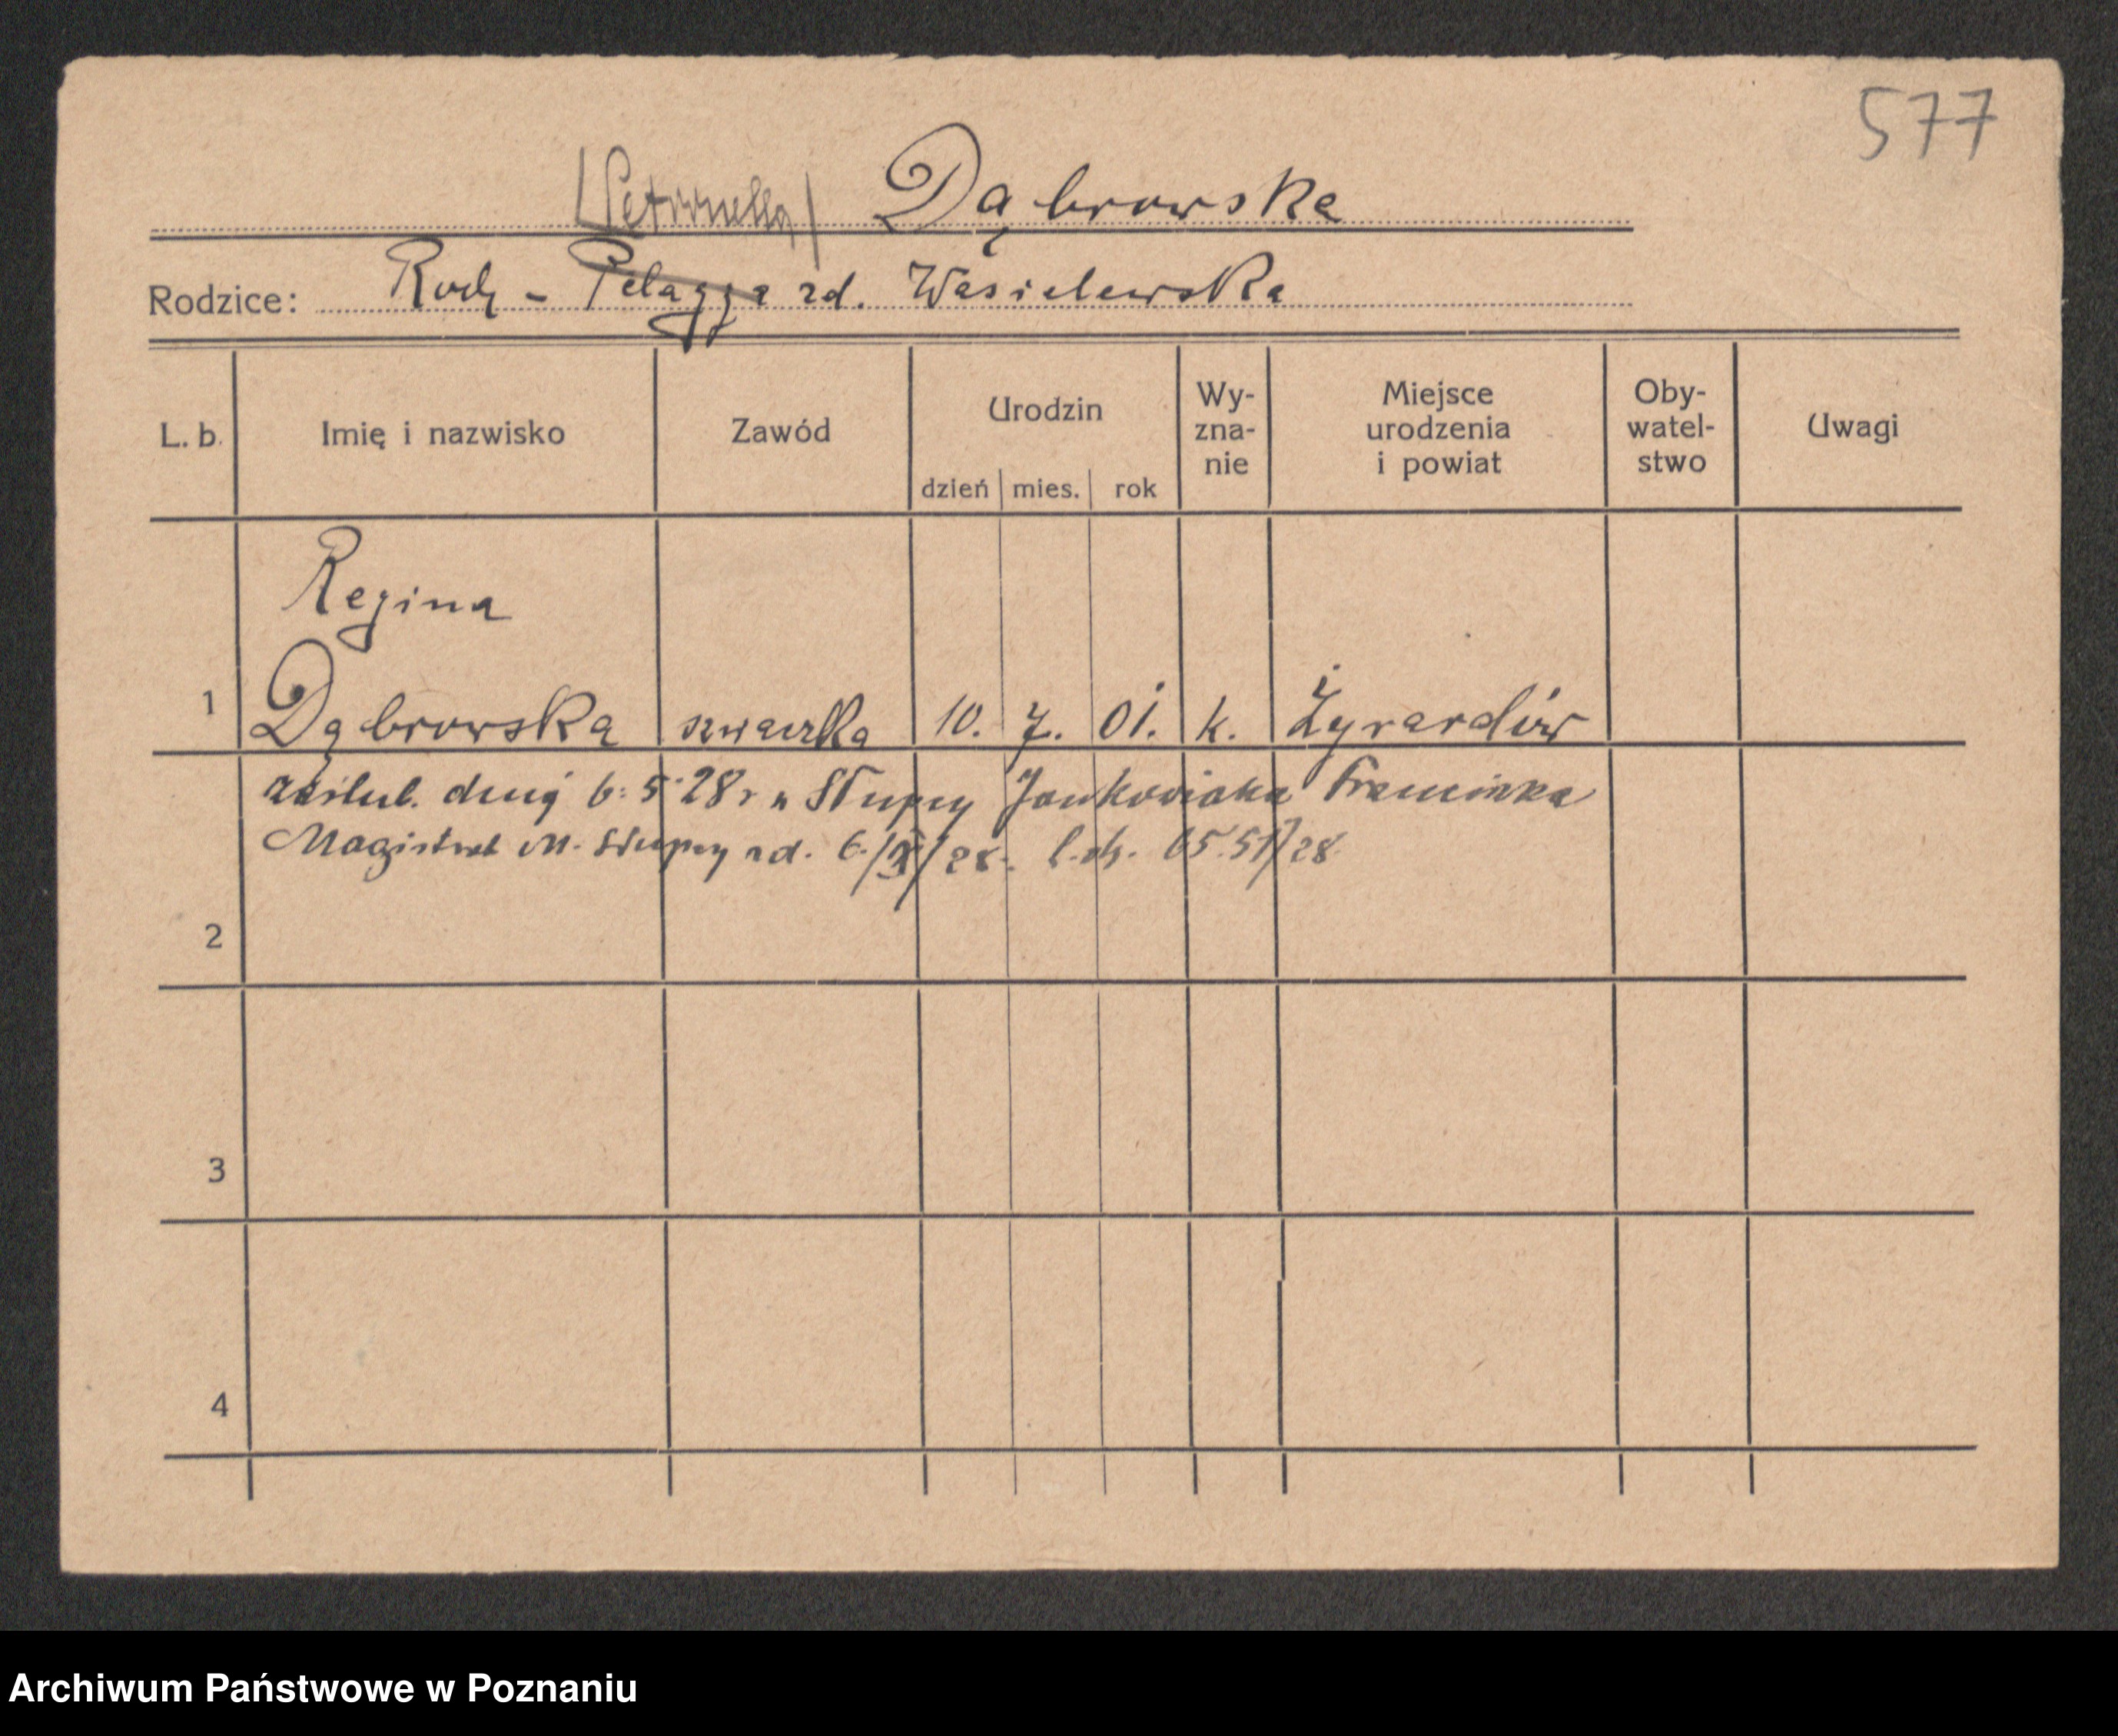 577
/Petronella/ Dąbrowska
Rodzice: Roch - Pelagja zd. Wasielewska
L. b. Imię i nazwisko Zawód Urodzin dzień mies. rok Wy-zna-nie Miejsce urodzenia i powiat Oby-watel-stwo Uwagi
Regina
1 Dąbrowska szwaczka 10. 7. 01. k. Żyrardów
zaślub. dnia 6. 5. 28 r w Słupcy Jankowiaka Franciszka
Magistrat M. Słupcy zd. 6./X/28. l. dz.
2
3
4
Archiwum Państwowe w Poznaniu